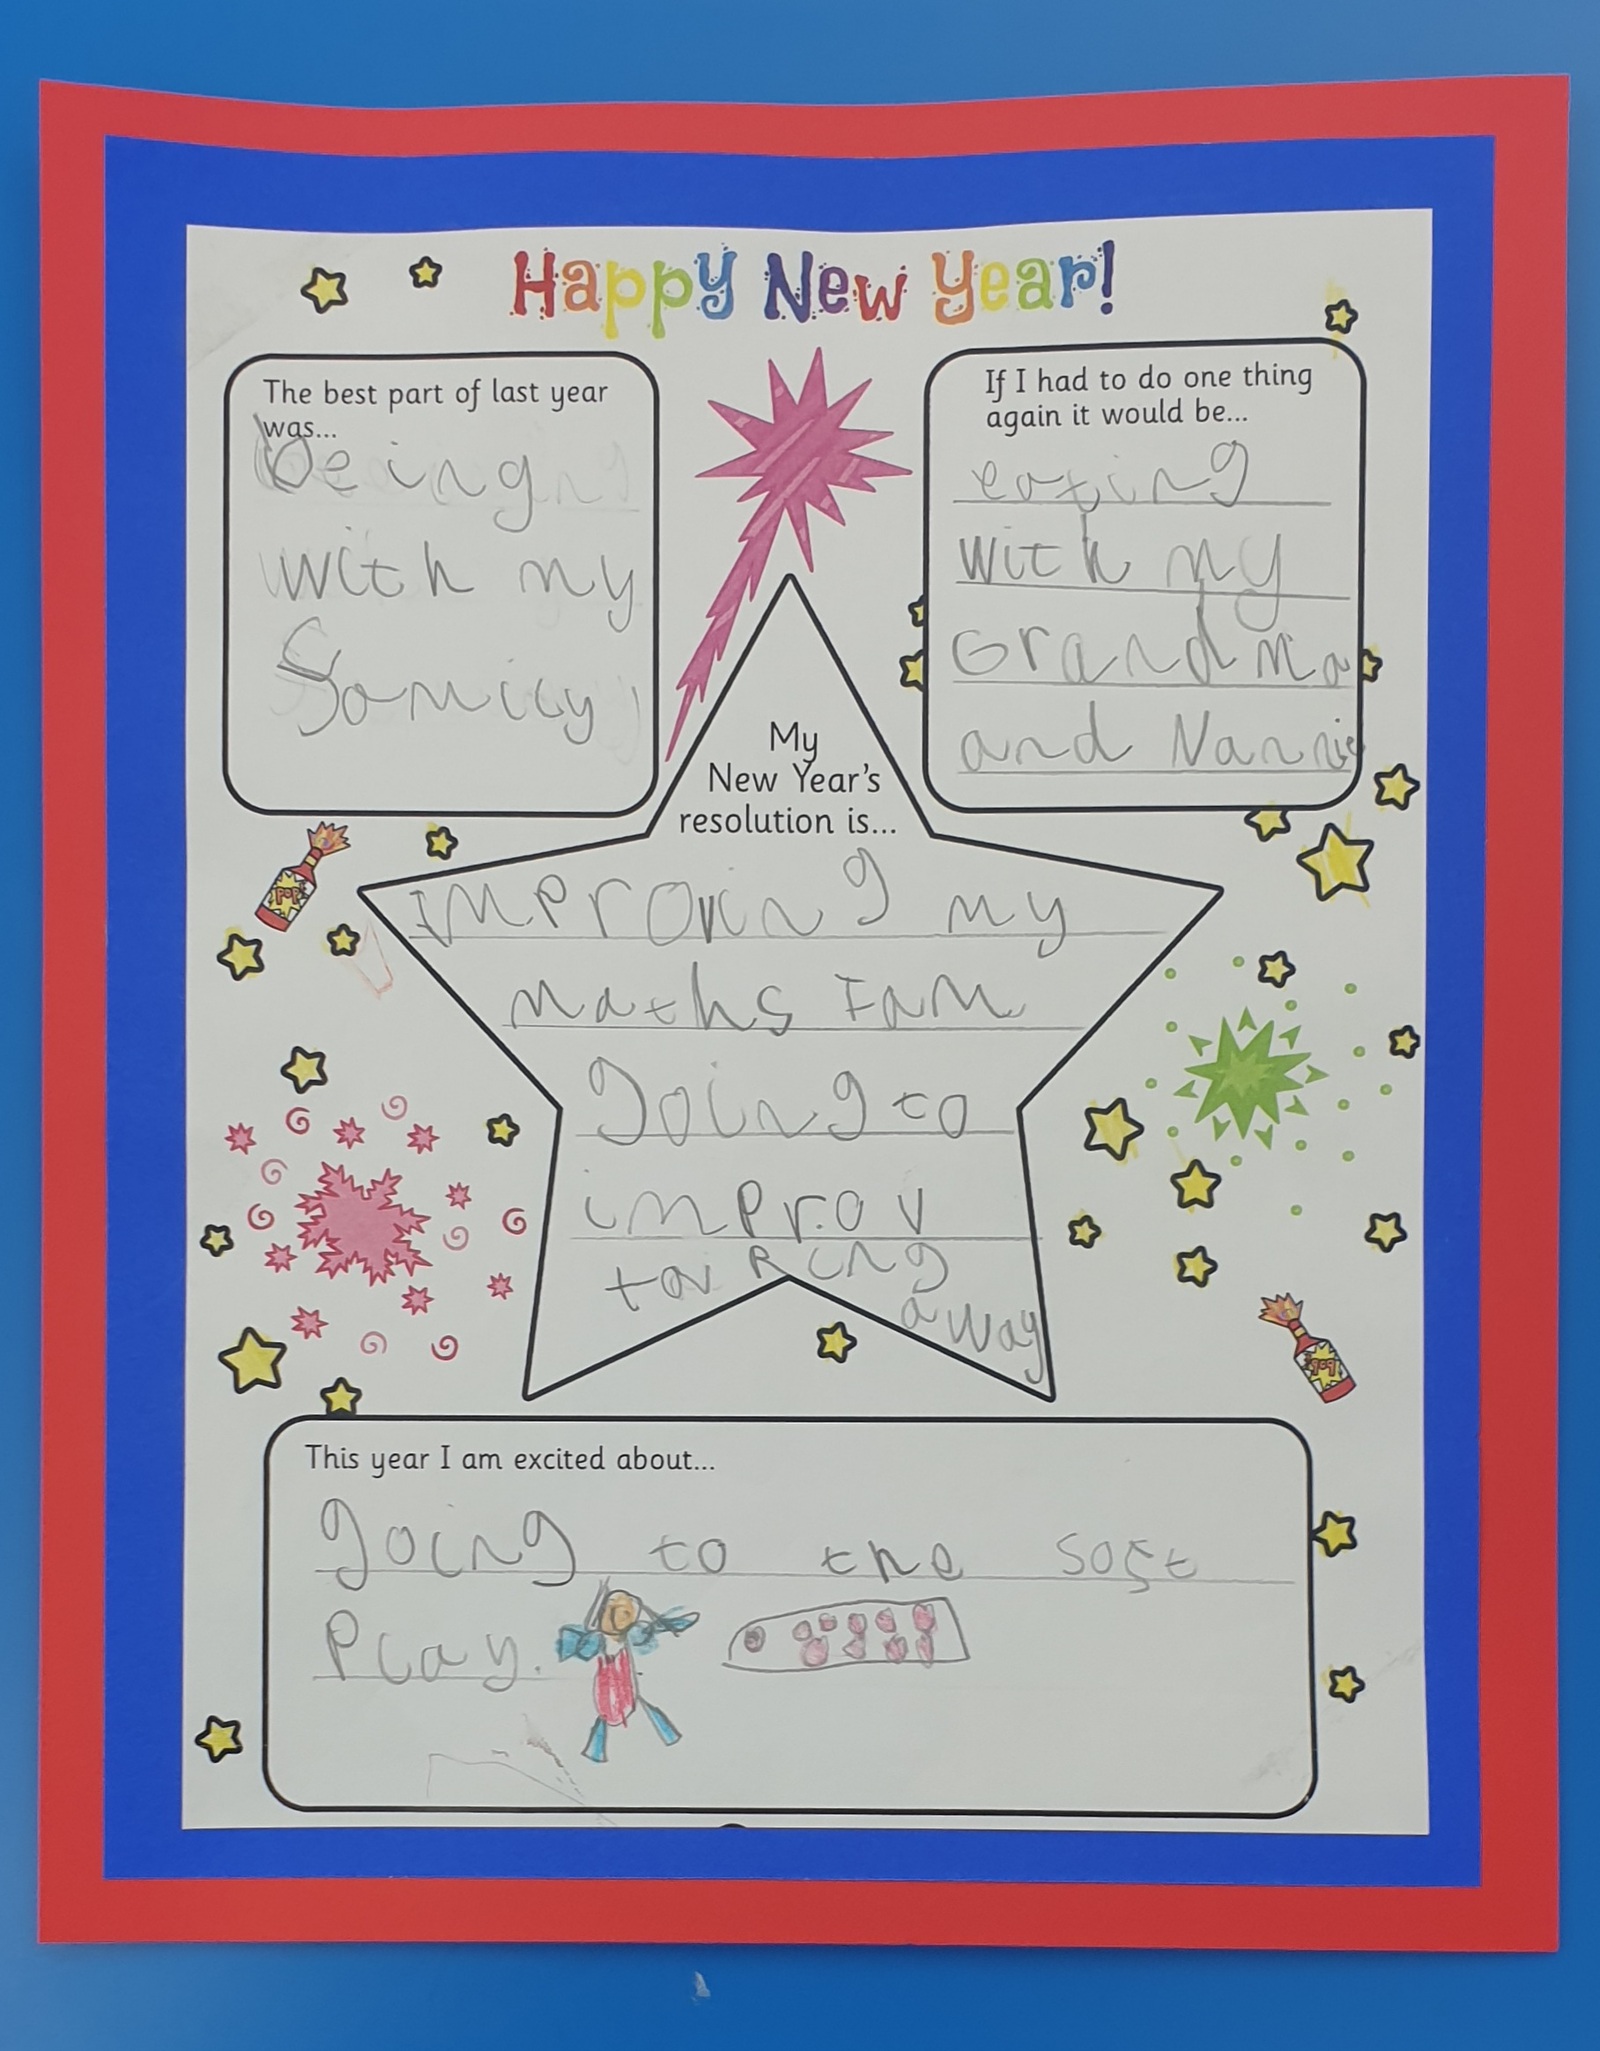 Happy New Year!
The best part of last year
was...
being
with my
family
If I had to do one thing
again it would be...
eating
with my
Grandma
and Nannie
My
New Year's
resolution is...
Improving my
maths I am
going to
improv
away
POP!
POP!
This year I am excited about...
going to the soft
Play.